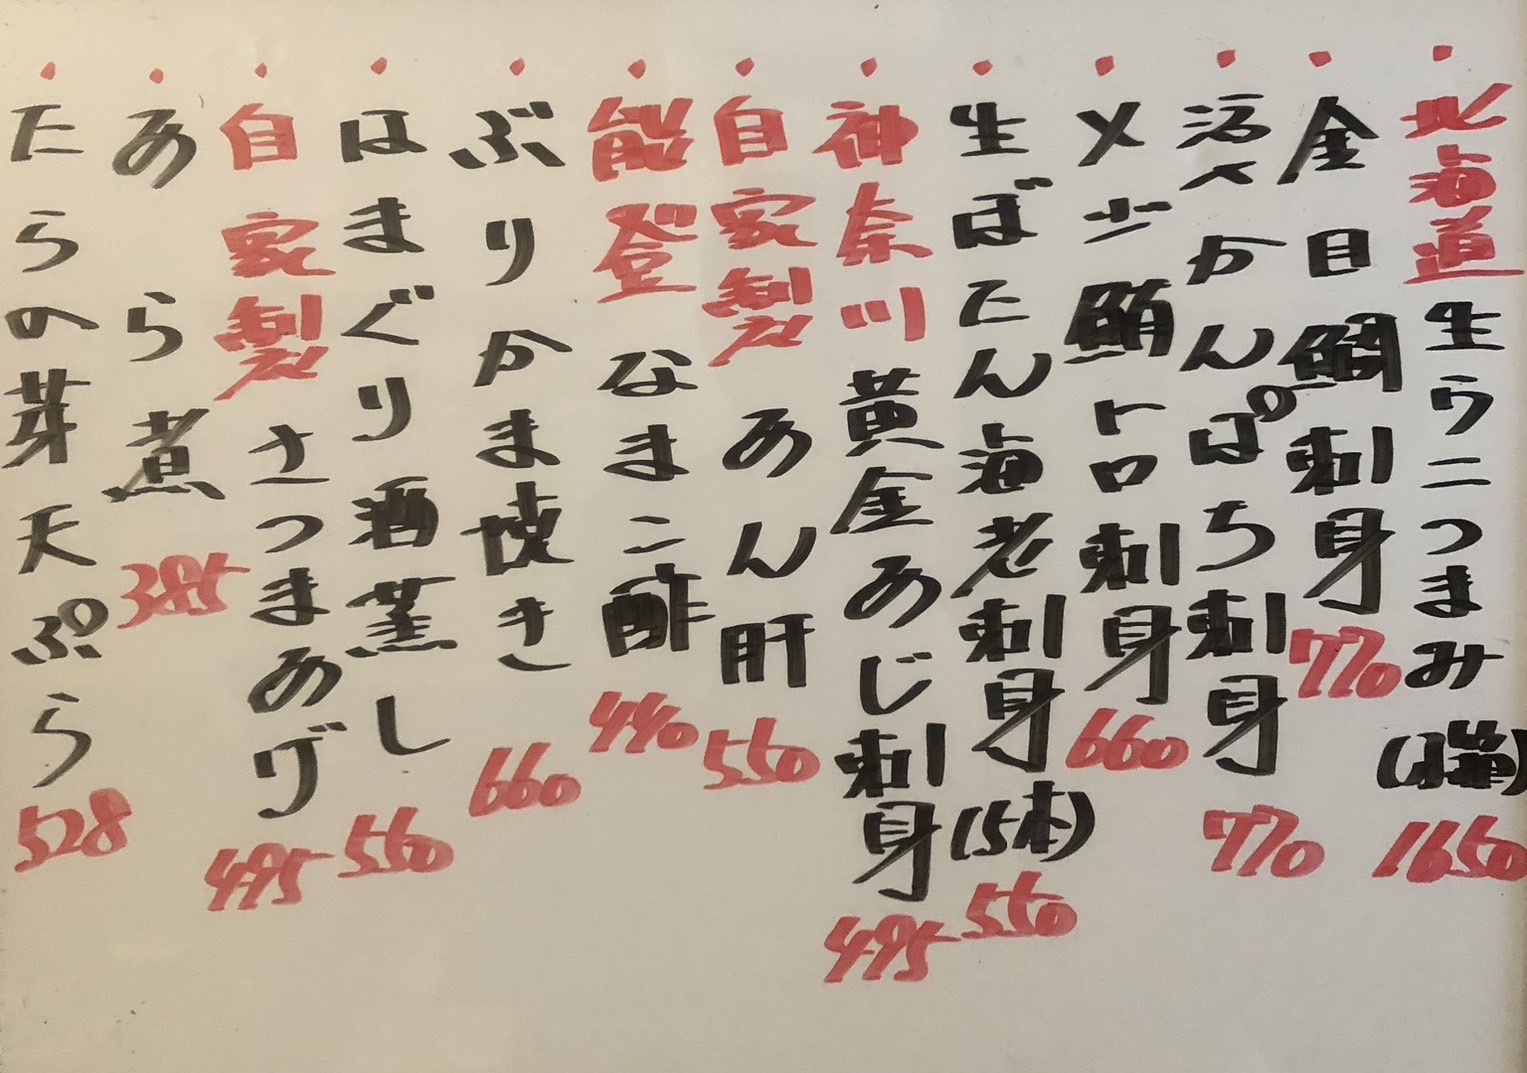 ・北海道生ウニつまみ(1箱)1650
・金目鯛刺身770
・活〆かんぱち刺身770
・メバチ鮪トロ刺身660
・生ぼたん海老刺身(5本)550
・神奈川黄金あじ刺身495
・自家製あん肝550
・能登なまこ酢440
・ぶりかま焼き660
・はまぐり酒蒸し560
・自家製さつまあげ495
・あら煮385
・たらの芽天ぷら528